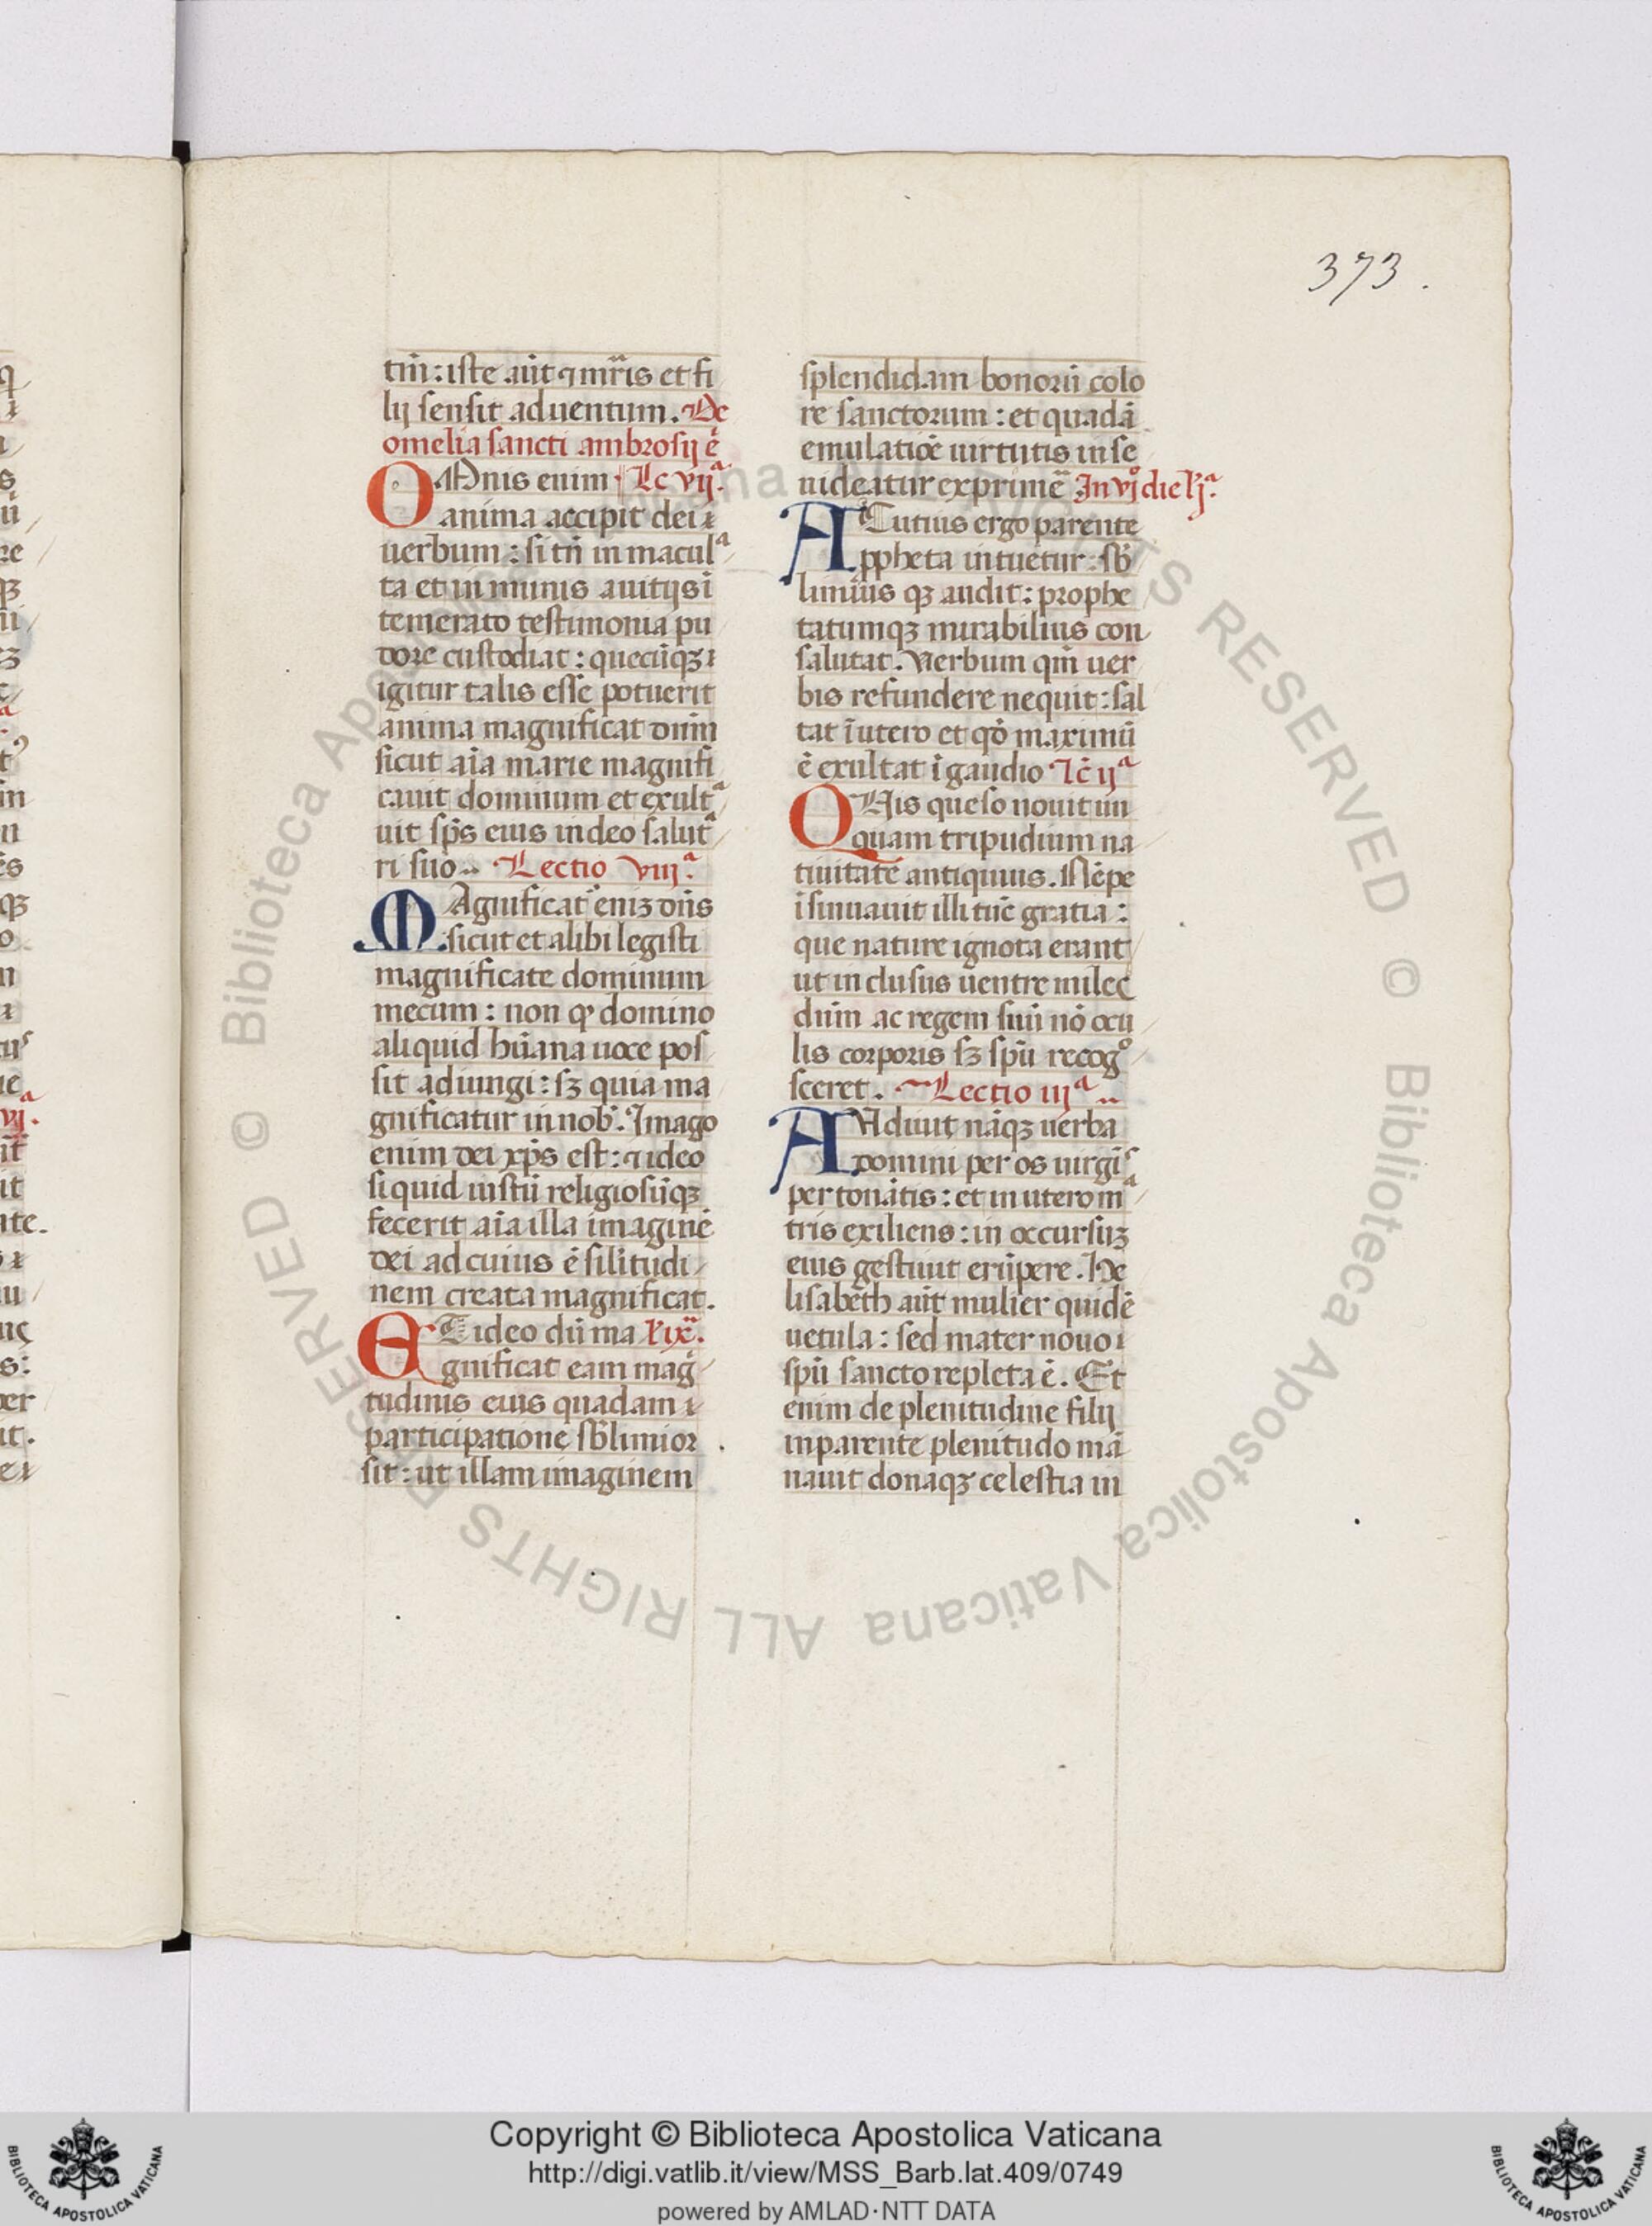 373.
tm̄: iste aūt ⁊ mr̄is et fi
lij sensit aduentum. De
omelia sancti ambrosij ē
OMnis enim Lc vijᵃ.
anima accipit dei
uerbum: si tn̄ inmaculᵃ
ta et inmunis a uitijs ī
temerato testimonia pu
dore custodiat: quecūqꝫ
igitur talis esse potuerit
anima magnificat dnm̄
sicut aīa marie magnifi
cauit dominum et exultᵃ
uit sp̄s eius in deo salutᵃ
ri suo.. Lectio viijᵃ.
MAgnificat enīꝫ dn̄s
sicut et alibi legisti
magnificate dominum
mecum: non ꝙ domino
aliquid hūana uoce pos
sit adiungi: sꝫ quia ma
gnificatur in nob̄. Imago
enim dei xp̄s est: ⁊ ideo
siquid iustū religiosūqꝫ
fecerit aīa illa imaginē
dei ad cuius ē silitudi
nem creata magnificat.
ET ideo dū ma l'ixᵃ.
gnificat eam magⁱ
tudinis eius quadam
participatione sb̄limior
sit: ut illam imaginem
splendidam bonorū colo
re sanctorum: et quadā
emulatiōe uirtutis in se
uideatur exprimē In vjᵒ die l'jᵃ.
ACutius ergo parente
ꝓpheta intuetur: sb̄
limius qꝫ audit: prophe
tatumqꝫ mirabilius con
salutat. Verbum qm̄ uer
bis refundere nequit: sal
tat ī utero et qō maximū
ē exultat ī gaudio Lc̄ ijᵃ
QUis queso nouit un
quam tripudium na
tiuitate antiquius. Nēpe
īsinuauit illi tūc gratia:
que nature ignota erant
ut inclusus uentre milec
dūm ac regem suū nō ocu
lis corporis sꝫ spū recogᵒ
sceret. Lectio iijᵃ..
AUdiuit nāqꝫ uerba
domini per os uirgīˢ
pertonātis: et in utero mᵃ
tris exiliens: in occursuꝫ
eius gestiuit erūpere. He
lisabeth aūt mulier quidē
uetula: sed mater nouo
spū sancto repleta ē. Et
enim de plenitudine filij
inparente plenitudo mā
nauit donaqꝫ celestia in
Copyright © Biblioteca Apostolica Vaticana
http://digi.vatlib.it/view/MSS_Barb.lat.409/0749
powered by AMLAD·NTT DATA